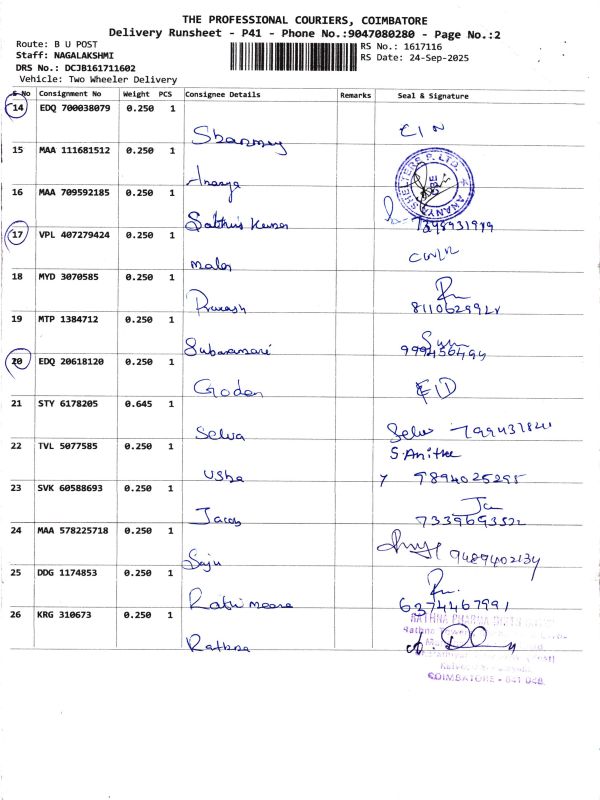 THE PROFESSIONAL COURIERS, COIMBATORE
Delivery Runsheet - P41 - Phone No.:9047080280 - Page No.:2
Route: B U POST
Staff: NAGALAKSHMI
DRS No.: DCJB161711602
Vehicle: Two Wheeler Delivery
RS No.: 1617116
RS Date: 24-Sep-2025
S No Consignment No Weight PCS Consignee Details Remarks Seal & Signature
14 EDQ 700038079 0.250 1
15 MAA 111681512 0.250 1
Ananya
ANANYA SHELTERS P. LTD.
16 MAA 709592185 0.250 1
Sathis Kumar 7398931999
17 VPL 407279424 0.250 1
18 MYD 3070585 0.250 1
Prakash
19 MTP 1384712 0.250 1
20 EDQ 20618120 0.250 1
21 STY 6178205 0.645 1
Selva Selva
22 TVL 5077585 0.250 1
S. Anitha
Usha 9894025295
23 SVK 60588693 0.250 1
Jacob
24 MAA 578225718 0.250 1
Saju 9489402134
25 DDG 1174853 0.250 1
6374467991
26 KRG 310673 0.250 1
Rathna
COIMBATORE - 641 048.